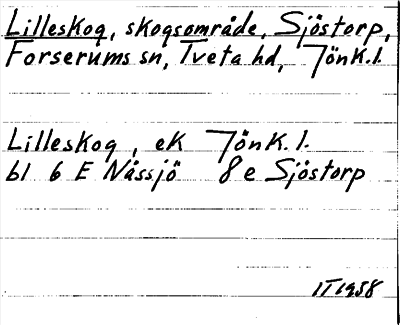 Lilleskog, skogsområde, Sjöstorp,
Forserums sn, Tveta hd, Jönk.l.
Lilleskog, ek Jönk.l.
bl 6 E Nässjö 8 e Sjöstorp
II 1958